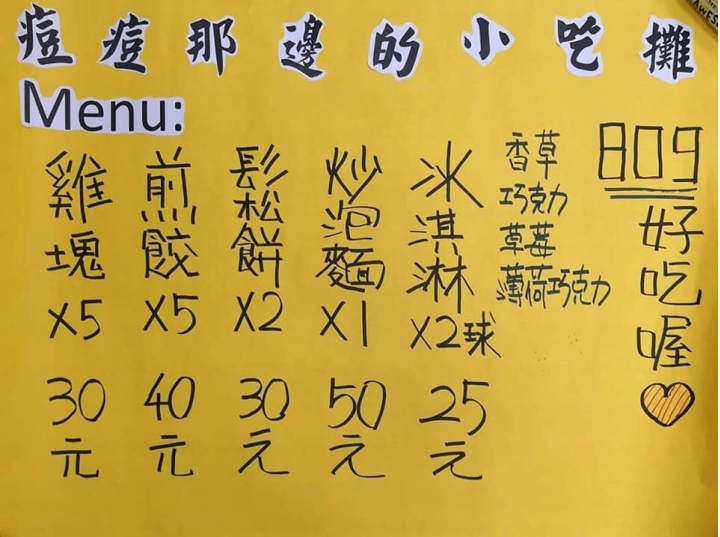 痘痘那邊的小吃攤
Menu:
雞塊
X5
30元
煎餃
X5
40元
鬆餅
X2
30元
炒泡麵
X1
50元
冰淇淋
X2球
25元
香草
巧克力
草莓
薄荷巧克力
809
好吃喔